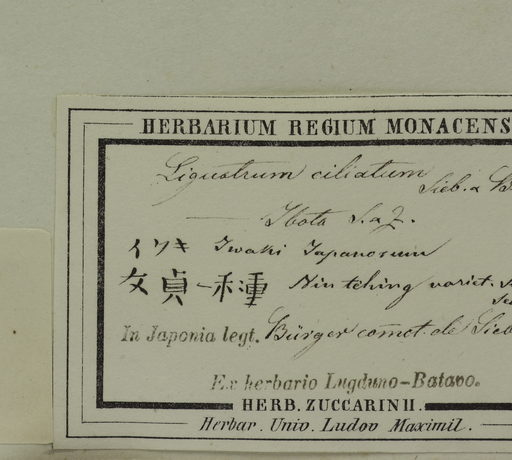 HERBARIUM REGIUM MONACENS
Ligustrum ciliatum Sieb. &
Ibota S. a Z.
イワキ Iwaki Japanorum
女貞一種 Nin tching variet.
In Japonia legt. Bürger comct. de Sieb
Ex herbario Lugduno-Batavo.
HERB. ZUCCARINII.
Herbar. Univ. Ludov Maximil.